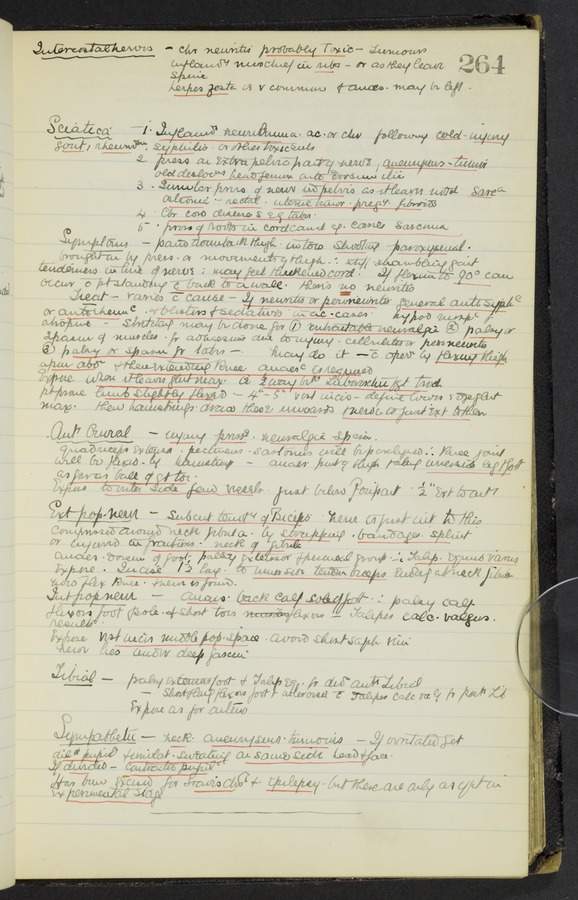 264
Intercostal nerves - chr neuritis probably toxic - Tumours
inflamy mischief in ribs - or as they leave
spine
herpes zosta is v common & anaes. may be left.
Sciatica - 1. Inflamd neurilemma. ac. or chr following cold - injury
gout, rheumm, syphilis or other toxic
2 press on extra pelvic part of nerve, aneurysms - tumor
old disloc head femur
3. Similar press of nerve in pelvis as it leaves notch Sarca
- rectal. uterine tumor. pregy. fibroids
4. Chr cord diseases e.g. tabes.
5. press of roots in cord canal eg. caries sarcoma
Symptoms - pain down back thigh in toes shooting paroxysmal.
brought on by press. or movements of thigh ∴ stiff shambling gait
tenderness in line of nerve: may feel thickened cord. If flexion to 90° can
occur, c pt standing c back to a wall. there is no neuritis
Treat - varies c cause - If neuritis or perineuritis general anti syphc
or antirheumc. blisters & sedatives in ac. cases. hypod morph
atropine - Stretching may be done for ① intractable neuralgia ② palsy or
spasm of muscles fr adhesions due to injury. cellulitis or perineuritis
③ palsy or spasm fr tabes - may do it - c open by flexing thigh
upon abdo & then extending knee anaesc is required
Expose when it leaves glut max. or 2 way bet
pt prone limb slightly flexed - 4"-5" vert incis - define lower edge glut
max. then hamstrings draw these inwards & nerve is just ext to them
Ant Crural - injury press. neuralgia spain.
quadriceps extensa. pectineus. sartorius will be paralysed ∴ knee joint
will be flexed by hamstring - anaes front of thigh & along inner side leg & foot
as far as ball of gt toe.
Expose to outer side fem vessels. just below Poupart ½" ext to art
Ext pop. nerv - Subcut tenoty of Biceps. nerve is just int to this
compressed around neck fibula - by strapping. bandages. splint
or injured in fractures. neck of fibula
Anaes. dorsum of foot; palsy extensor & peroneal group ∴ Talip. Equino varus
Expose. Incise 1½ long. to inner side tendon biceps ending at neck fibula
also flex knee. & nerve is found.
Int pop nerv - anaes. back calf sole of foot ∴ palsy calf
flexors foot & sole & short toes flexors - Talipes calc. valgus.
results.
Expose vert incis middle pop. space. avoid short saph vein
nerve lies under deep fascia
Tibial - palsy extensors foot & Talip Eq. fr div ant Tibial
- Short & long flexors foot & interossei c Talipes calc valg fr post Tib
Expose as for arteries
Sympathetic - neck. aneurysms. tumours - If irritated get
dild pupil & unilat. sweating on same side head & face.
If divided - contracted pupil
Has been excised for Graves dis & epilepsy - but these are only as yet in
experimental stage